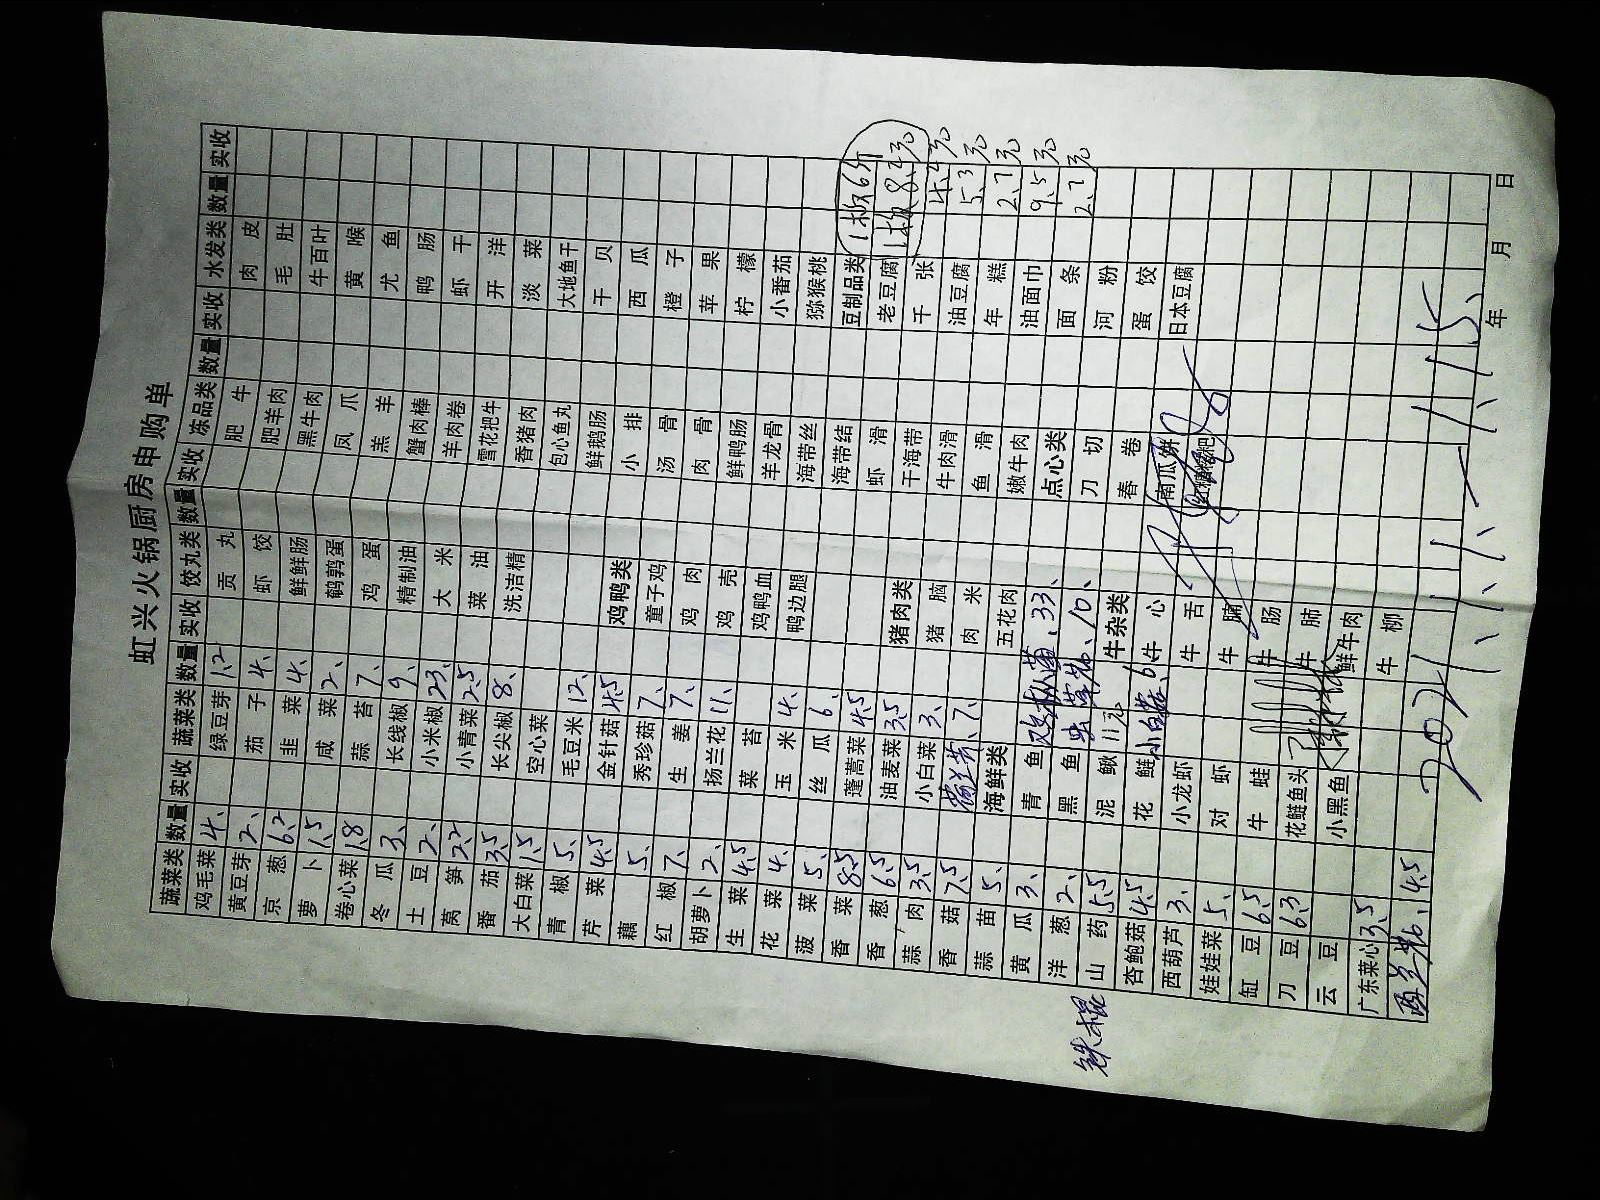 虹兴火锅厨房申购单
蔬菜类 数量 实收 蔬菜类 数量 实收 饺丸类 数量 实收 冻品类 数量 实收 水发类 数量 实收
鸡毛菜 4、 绿豆芽 1.2 贡丸 肥牛 肉皮
黄豆芽 2、 茄子 4、 虾饺 肥羊肉 毛肚
京葱 6.2 韭菜 4、 鲜鲜肠 黑牛肉 牛百叶
萝卜 1.5 咸菜 2、 鹌鹑蛋 凤爪 黄喉
卷心菜 1.8 蒜苔 7、 鸡蛋 羔羊 尤鱼
冬瓜 3、 长线椒 9、 精制油 蟹肉棒 鸭肠
土豆 2、 小米椒 23、 大米 羊肉卷 虾干
莴笋 2.2 小青菜 2.5 菜油 雪花把牛 开洋
番茄 3.5 长尖椒 8、 洗洁精 香猪肉 淡菜
大白菜 1.5 空心菜 包心鱼丸 大地鱼干
青椒 5、 毛豆米 12、 鲜鹅肠 干贝
芹菜 4.5 金针菇 4.5 鸡鸭类 小排 西瓜
藕 5、 秀珍菇 7、 童子鸡 汤骨 橙子
红椒 7、 生姜 7、 鸡肉 肉骨 苹果
胡萝卜 2、 扬兰花 11、 鸡壳 鲜鸭肠 柠檬
生菜 4.5 菜苔 鸡鸭血 羊龙骨 小番茄
花菜 4、 玉米 4、 鸭边腿 海带丝 猕猴桃
菠菜 5、 丝瓜 6、 海带结 豆制品类 1板6斤
香菜 8.5 蓬蒿菜 4.5 虾滑 老豆腐 1板8.4元
香葱 6.5 油麦菜 3.5 猪肉类 干海带 千张 4.4元
蒜肉 3.5 小白菜 3、 猪脑 牛肉滑 油豆腐 5.3元
香菇 7.5 7、 肉米 鱼滑 年糕 2.7元
蒜苗 5、 海鲜类 五花肉 嫩牛肉 油面巾 9.5元
黄瓜 3、 青鱼 33、 点心类 面条 2.7元
洋葱 2、 黑鱼 10、 刀切 河粉
铁棍 山药 5.5 泥鳅 11元 牛杂类 春卷 蛋饺
杏鲍菇 4.5 花鲢 6、 牛心 南瓜饼 日本豆腐
西葫芦 3、 小龙虾 牛舌 红糖糍粑
娃娃菜 5、 对虾 牛腩
缸豆 6.5 牛蛙 牛肠
刀豆 6.3 花鲢鱼头 牛肺
云豆 小黑鱼 鲜牛肉
广东菜心 3.5 牛柳
4.5
2021、 年 月 15、 日